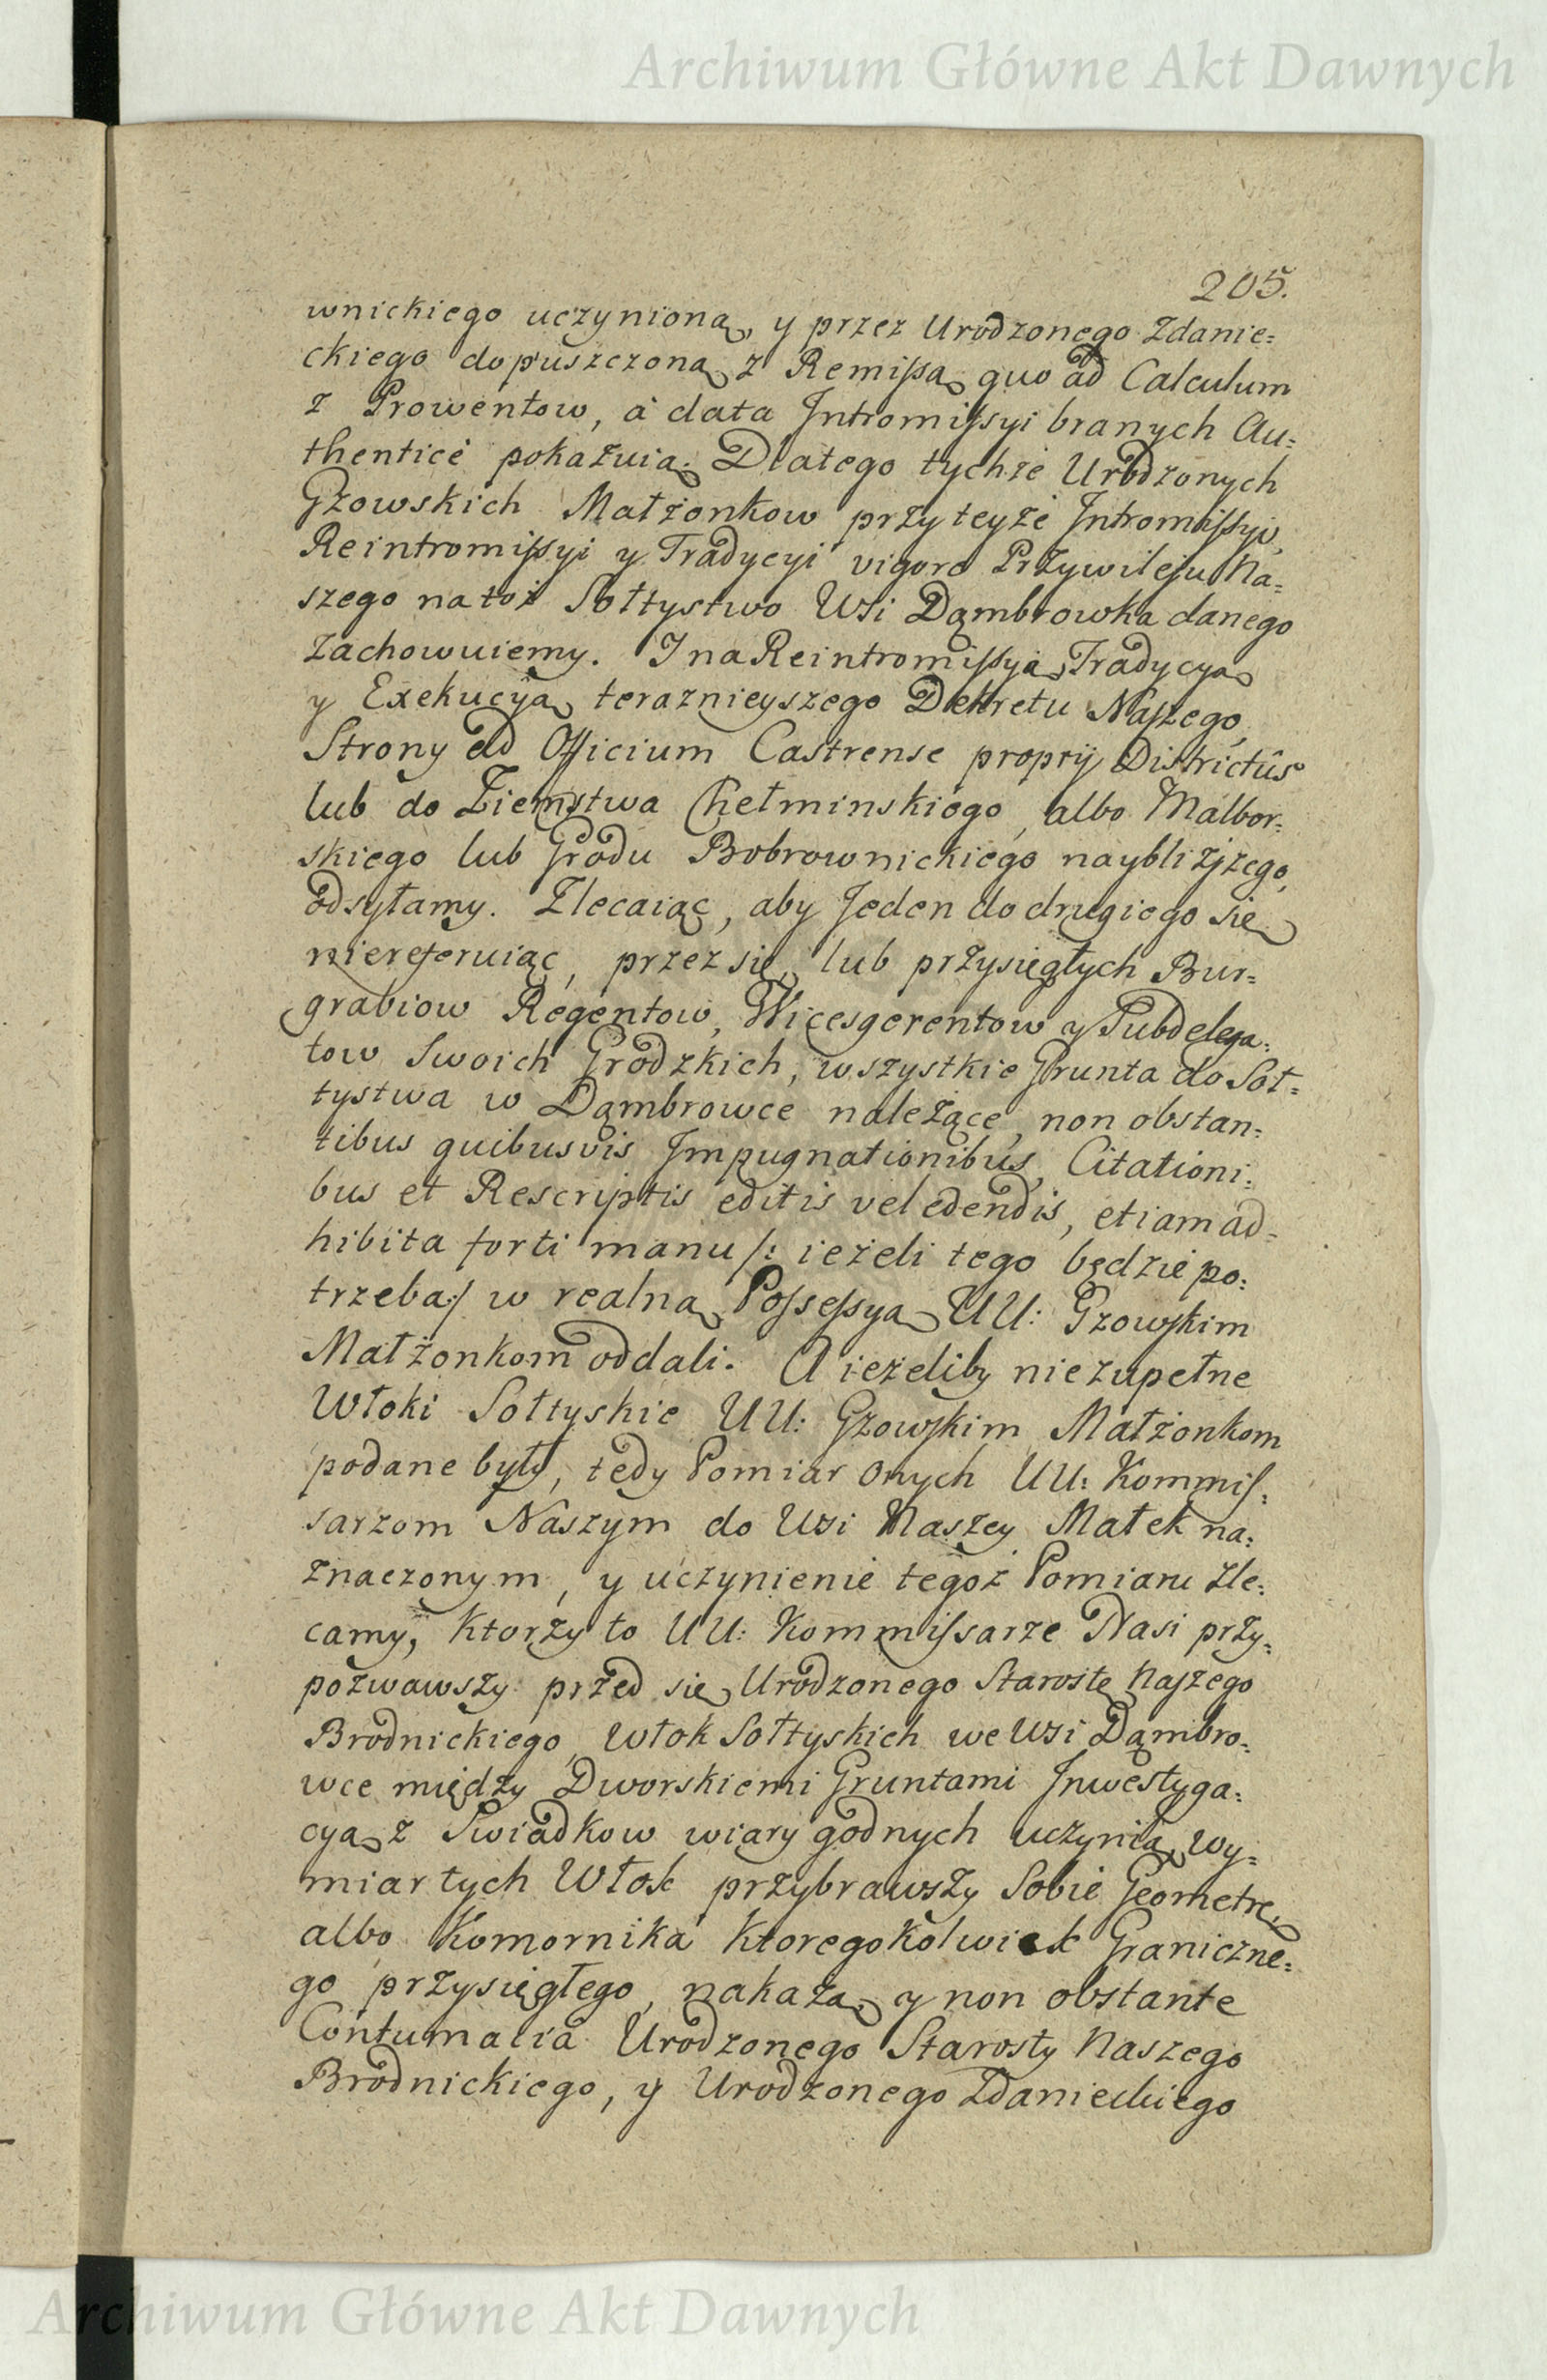 Archiwum Główne Akt Dawnych
205.
wnickiego uczynioną, y przez Urodzonego Zdanie=
ckiego dopuszczoną z Remissą quo ad Calculum
z Prowentow, à data Intromissyi branych Au=
thenticè pokazuią. Dlatego tychże Urodzonych
Gzowskich Małżonkow przy teyże Intromissyi,
Reintromissyi y Tradycyi vigore Przywileju Na=
szego na toż Sołtystwo Wsi Dąmbrowka danego
zachowuiemy. I na Reintromissyią, Tradycyą
y Exekucyą teraznieyszego Dekretu Naszego,
Strony ad Officium Castrense proprij Districtûs
lub do Ziemstwa Chełminskiego, albo Malbor=
skiego lub Grodu Bobrownickiego naybliższego,
odsyłamy. Zlecaiąc, aby Jeden do drugiego się
niereferuiąc, przez się, lub przysięgłych Bur=
grabiow Regentow, Wicesgerentow y Subdelega=
tow Swoich Grodzkich, wszystkie Grunta do Soł=
tystwa w Dąmbrowce należące, non obstan=
tibus quibusvis Impugnationibus, Citationi=
bus et Rescriptis editis vel edendis, etiam ad=
hibita forti manu /: ieżeli tego będzie po=
trzeba:/ w realną Possessyą UU: Gzowskim
Małżonkom oddali. A ieżeliby niezupełne
Włoki Sołtyskie UU: Gzowskim Małżonkom
podane były, tedy Pomiar onych UU: Kommis=
sarzom Naszym do Wsi Naszey Małek na=
znaczonym, y uczynienie tegoż Pomiaru zle=
camy, ktorzy to UU: Kommissarze Nasi przy=
pozwawszy przed się Urodzonego Starostę Naszego
Brodnickiego, Włok Sołtyskich we Wsi Dąmbro=
wce między Dworskiemi Gruntami Inwestyga=
cyą z Swiadkow wiary godnych uczynią, wy=
miar tych Włok przybrawszy Sobie Geometrę
albo Komornika ktoregokolwiek Graniczne=
go przysięgłego, nakażą, y non obstante
Contumacia Urodzonego Starosty Naszego
Brodnickiego, y Urodzonego Zdanieckiego
Archiwum Główne Akt Dawnych